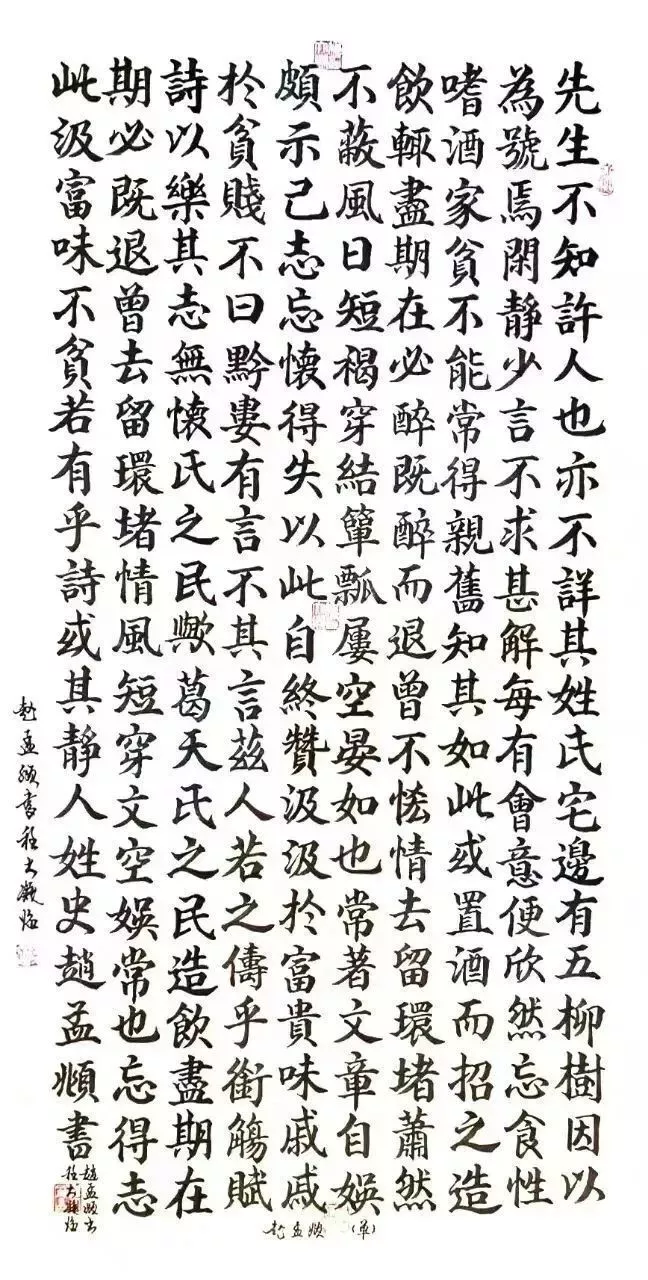 先生不知許人也亦不詳其姓氏宅邊有五柳樹因以
為號焉閑靜少言不求甚解每有會意便欣然忘食性
嗜酒家貧不能常得親舊知其如此或置酒而招之造
飲輒盡期在必醉既醉而退曾不恡情去留環堵蕭然
不蔽風日短褐穿結簞瓢屢空晏如也常著文章自娛
頗示己志忘懷得失以此自終贊汲汲於富貴味戚戚
於貧賤不曰黔婁有言不其言茲人若之儔乎銜觴賦
詩以樂其志無懷氏之民歟葛天氏之民造飲盡期在
期必既退曾去留環堵情風短穿文空娛常也忘得志
此汲富味不貧若有乎詩或其靜人姓史趙孟頫書
趙孟頫書程大
趙孟頫書程大
趙孟頫